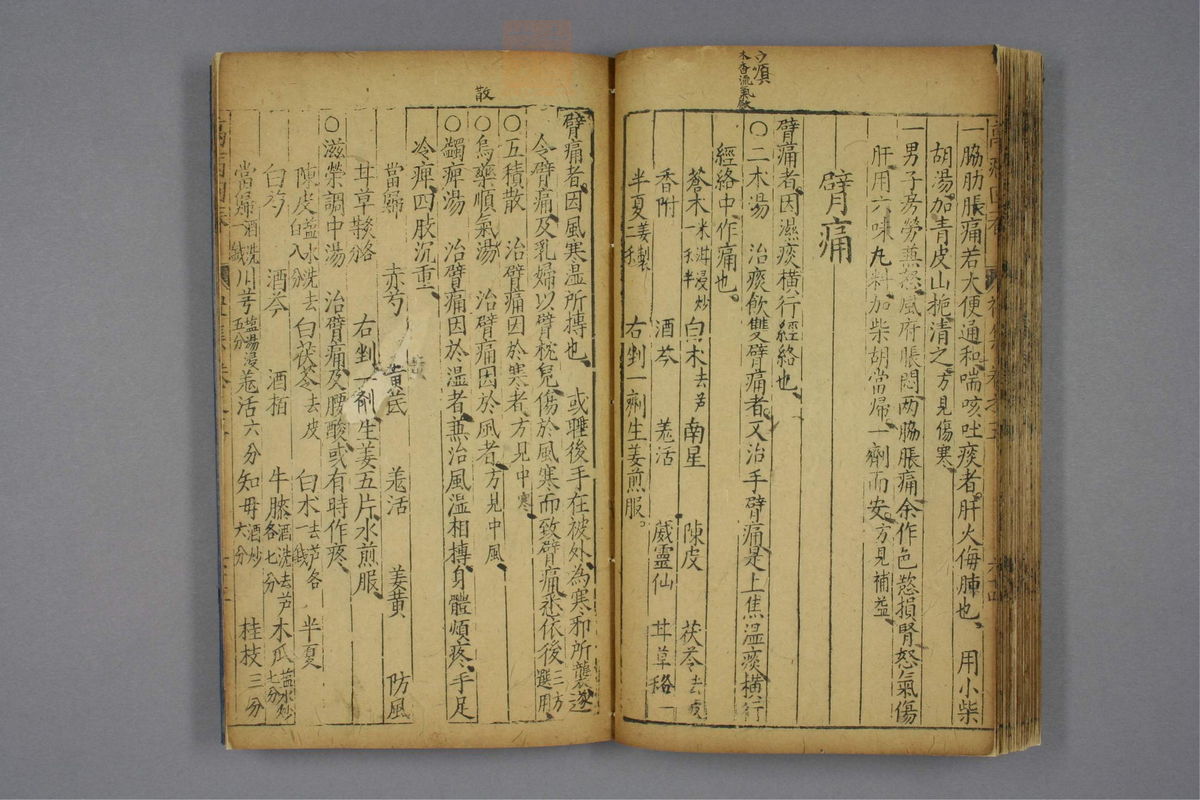 一脇肋脹痛若大便通和喘咳吐痰者肝火侮腫也用小柴
胡湯加青皮山梔清之方見傷寒
一男子房勞兼怒風府脹悶两脇脹痛余作色慾損腎怒氣傷
肝用六味丸料加柴胡當歸一劑而安方見補益
臂痛
臂痛者因濕痰橫行經絡也
〇二木湯 治痰飲雙臂痛者又治手臂痛是上焦湿痰橫行
經絡中作痛也
蒼木米泔浸炒一錢半 白木去芦 南星 陳皮 茯苓去皮
香附 酒芩 羗活 威靈仙 甘草各一
半夏姜製二錢 右剉一劑生姜煎服
木香流氣散
散
臂痛者因風寒湿所摶也 或睡後手在被外為寒邪所襲遂
令臂痛及乳婦以臂枕兒傷於風寒而致臂痛悉依後三方選用
〇五積散 治臂痛因於寒者方見中寒
〇烏藥順氣湯 治臂痛因於風者方見中風
〇蠲痹湯 治臂痛因於湿者兼治風湿相摶身體煩疼手足
冷痹四肢沉重
當歸 赤芍 黃芪 羗活 姜黃 防風
甘草炙各 右剉一劑生姜五片水煎服
〇滋榮調中湯 治臂痛及腰酸或有時作疼
陳皮塩水洗去白八分 白茯苓去皮 白木去芦各一錢 半夏
白芍 酒芩 酒栢 牛膝酒洗去芦各七分 木瓜塩水炒七分
當歸酒洗一錢 川芎塩湯浸五分 羗活六分 知毋酒炒六分 桂枝三分